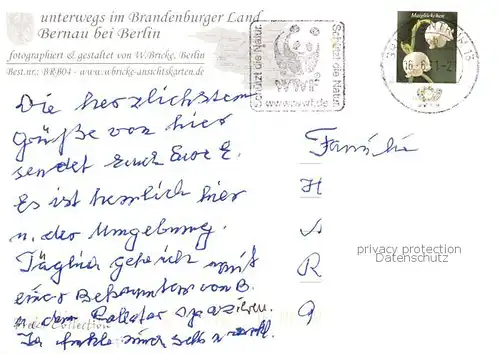 unterwegs im Brandenburger Land
Bernau bei Berlin
fotographiert & gestaltet von W. Bricke, Berlin
Best.nr.: BRB04 - www.wbricke-ansichtskarten.de
Schützt die Natur
WWF
www.wwf.de
Schützt die Natur
Maiglöckchen
16.6.11-21
Die herzlichsten
Grüße von hier
sendet Euch Eure E.
Es ist herrlich hier
u. der Umgebung.
Täglich gehe ich mit
einer Bekannten von B.
u. dem Rollator spazieren.
Ich fühle mich sehr wohl.
Familie
H
A
R
9
privacy protection
Datenschutz
Collection